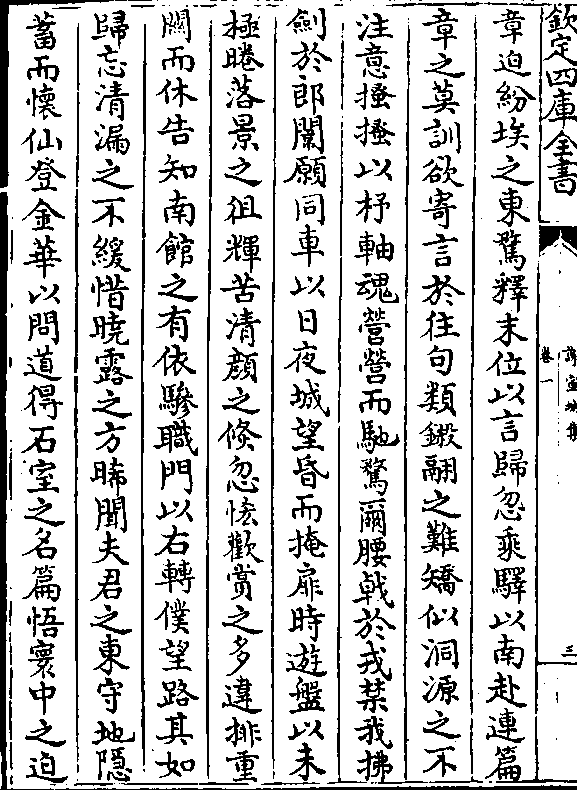 欽定四庫全書
謝宣城集
卷一
三
章迫紛埃之東騖釋末位以言歸忽乘驛以南赴連篇
章之莫訓欲寄言於往句類鎩翮之難矯似洞源之不
注意搔搔以杼軸魂營營而馳騖爾腰戟於戎禁我拂
劍於郎闈願同車以日夜城望昏而掩扉時遊盤以未
極睠落景之徂輝苦清顔之倏忽惜歡賞之多違排重
闗而休告知南館之有依驂職門以右轉僕望路其如
歸忘清漏之不緩惜曉露之方晞聞夫君之東守地隱
蓄而懷仙登金華以問道得石室之名篇悟寰中之迫